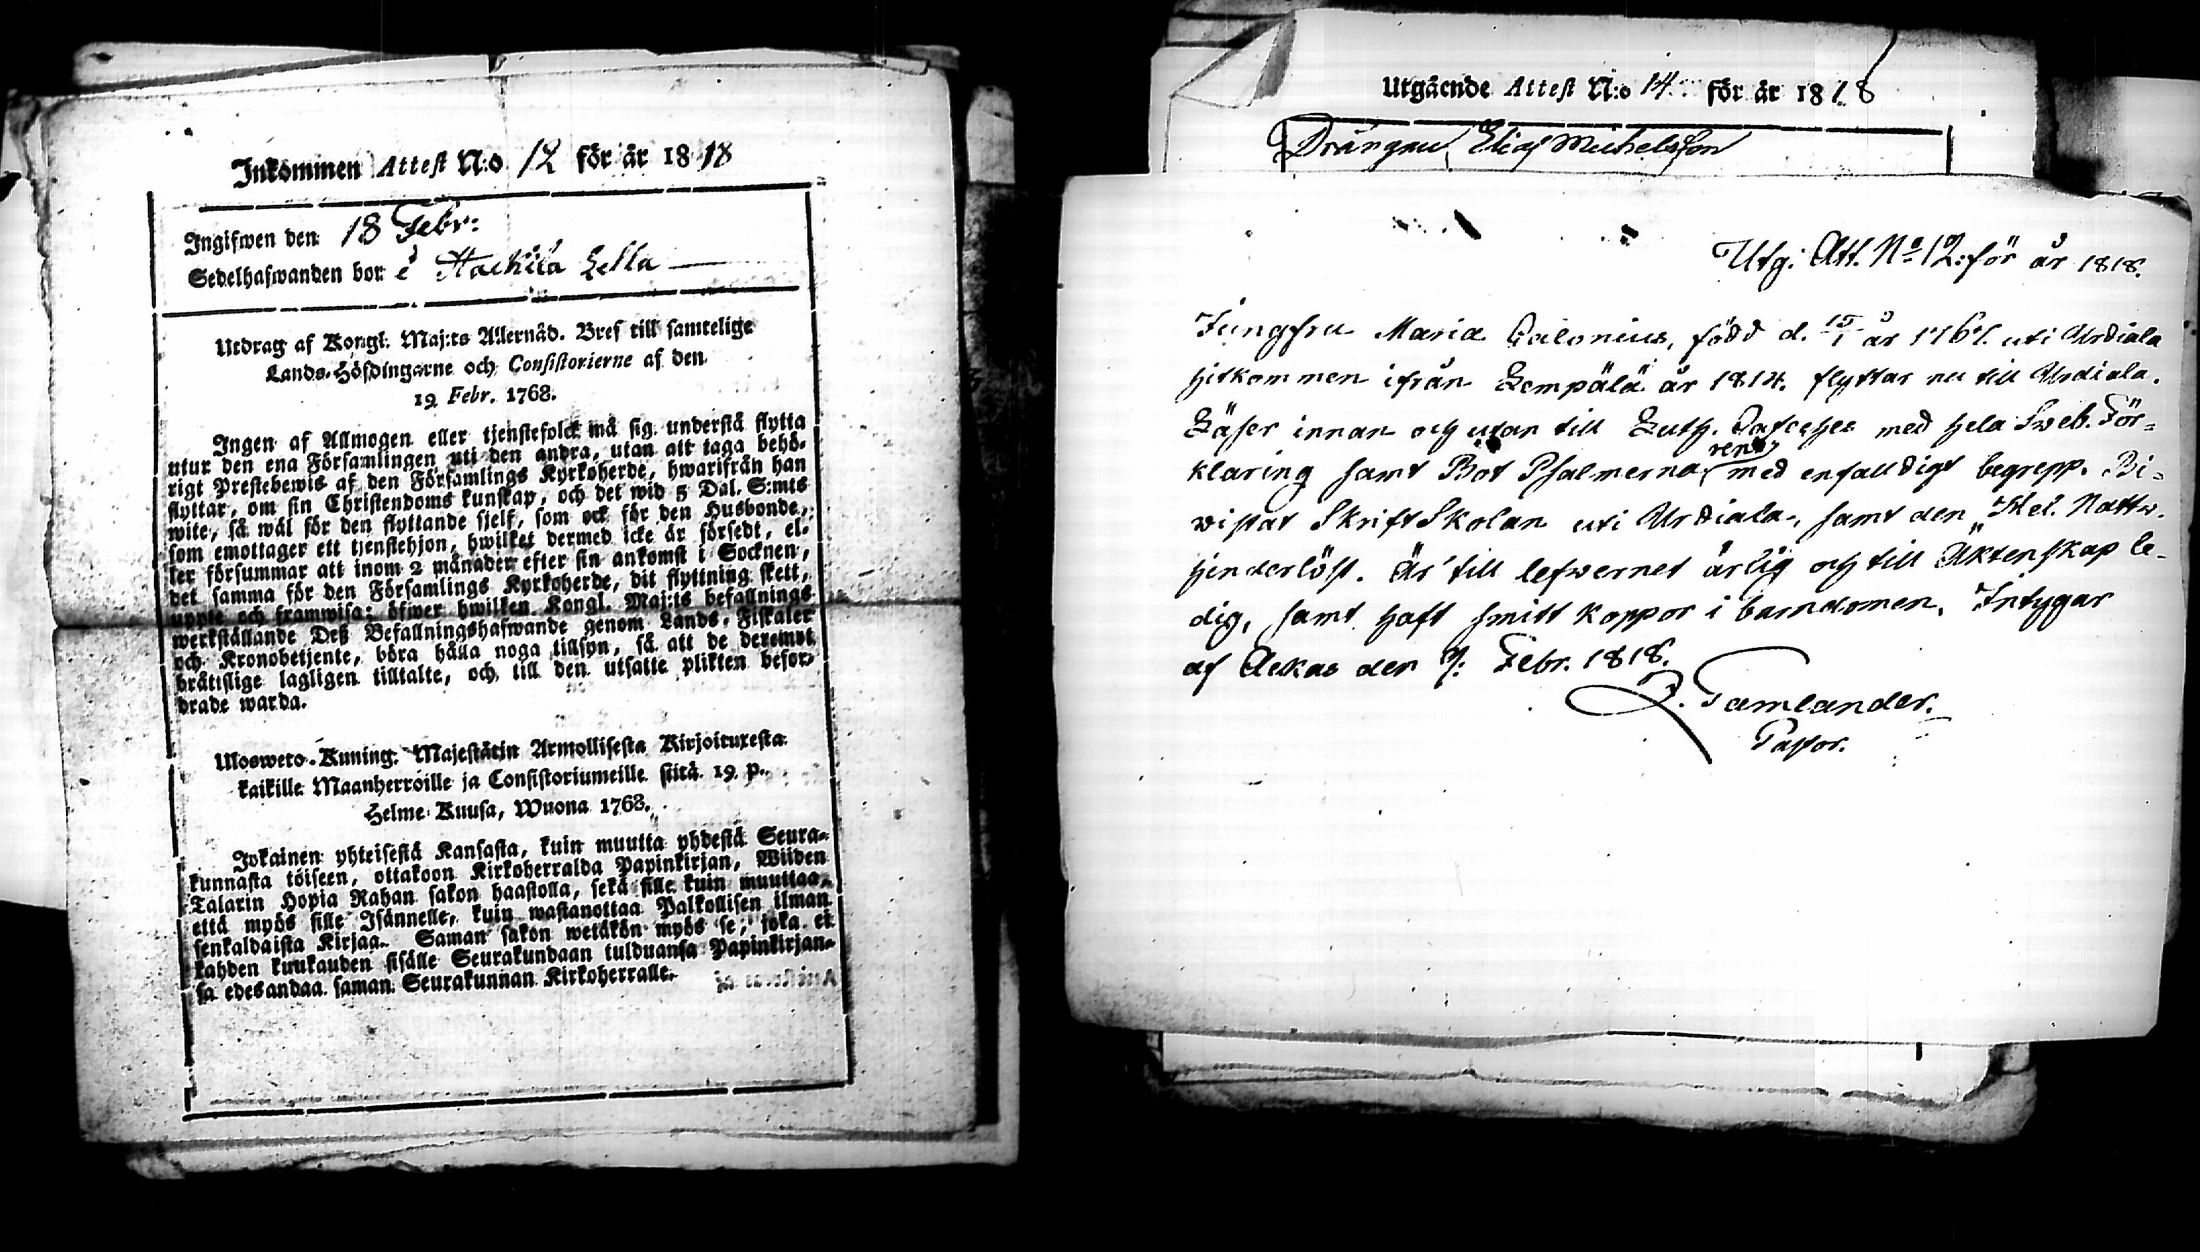 Inkommen Attest N:o 12 för år 1818
Ingifwen den 18 Febr:
Sedelhafwanden bor i Hackila Lella
Utdrag af Kongl. Maj:ts Allernåd. Bref till samtelige
Lands-Höfdingarne och Consistorierne af den
19 Febr. 1768.
Ingen af Allmogen eller tjenstefolck må sig understå flytta
utur den ena Församlingen uti den andra, utan att taga behö-
rigt Prestebewis af den Församlings Kyrkoherde, hwarifrån han
flyttar, om sin Christendoms kunskap, och det wid 5 Dal. S:mts
wite, så wäl för den flyttande sjelf, som ock för den Husbonde,
som emottager ett tjenstehjon, hwilket dermed icke är försedt, el-
ler försummar att inom 2 månader efter sin ankomst i Socknen,
det samma för den Församlings Kyrkoherde, dit flyttning skett,
uppte och framwisa; öfwer hwilken Kongl. Maj:ts befallnings
werkställande Deß Befallningshafwande genom Lands-Fiskaler
och Kronobetjente, böra hålla noga tillsyn, så att de deremot
bråttslige lagligen tilltalte, och till den utsatte plikten befor-
drade warda.
Ulosweto Kuning. Majestätin Armollisesta Kirjoituxesta
kaikille Maanherroille ja Consistoriumeille siitä 19. p.
Helme Kuusa, Wuona 1768.
Jokainen yhteisestä Kansasta, kuin muutta yhdestä Seura-
kunnasta töiseen, ottakoon Kirkoherralda Papinkirjan, Wiiden
Talarin Hopia Rahan sakon haastolla, sekä sille kuin muuttaa,
että myös sille Isännelle, kuin wastanottaa Palkollisen ilman
senkaldaista Kirjaa. Saman sakon wetäkön myös se, joka ei
kahden kuukauden sisälle Seurakundaan tulduansa Papinkirjan-
sa edesandaa saman Seurakunnan Kirkoherralle.
Utgående Attest N:o 14 för år 1818
Drängen Elias Michelsson
Utg: Att. No 12: för år 1818.
Jungfru Maria Calonius, född d. 15/1 år 1767. uti Urdiala
hitkommen ifrån Lempälä år 1814. flyttar nu till Urdiala.
Läser innan och utan till Luth. Cateches med hela Sweb. För-
klaring samt Bot Psalmerna rent med enfalldigt begrepp. Bi-
wistat SkriftSkolan uti Urdiala, samt den Hel. Nattw.
hinderlöst. Är till lefwernet ärlig och till Äktenskap le-
dig, samt haft smitt koppor i barndomen. Intygar
af Ackas den Febr. 1818.
Tamlander.
Pastor.